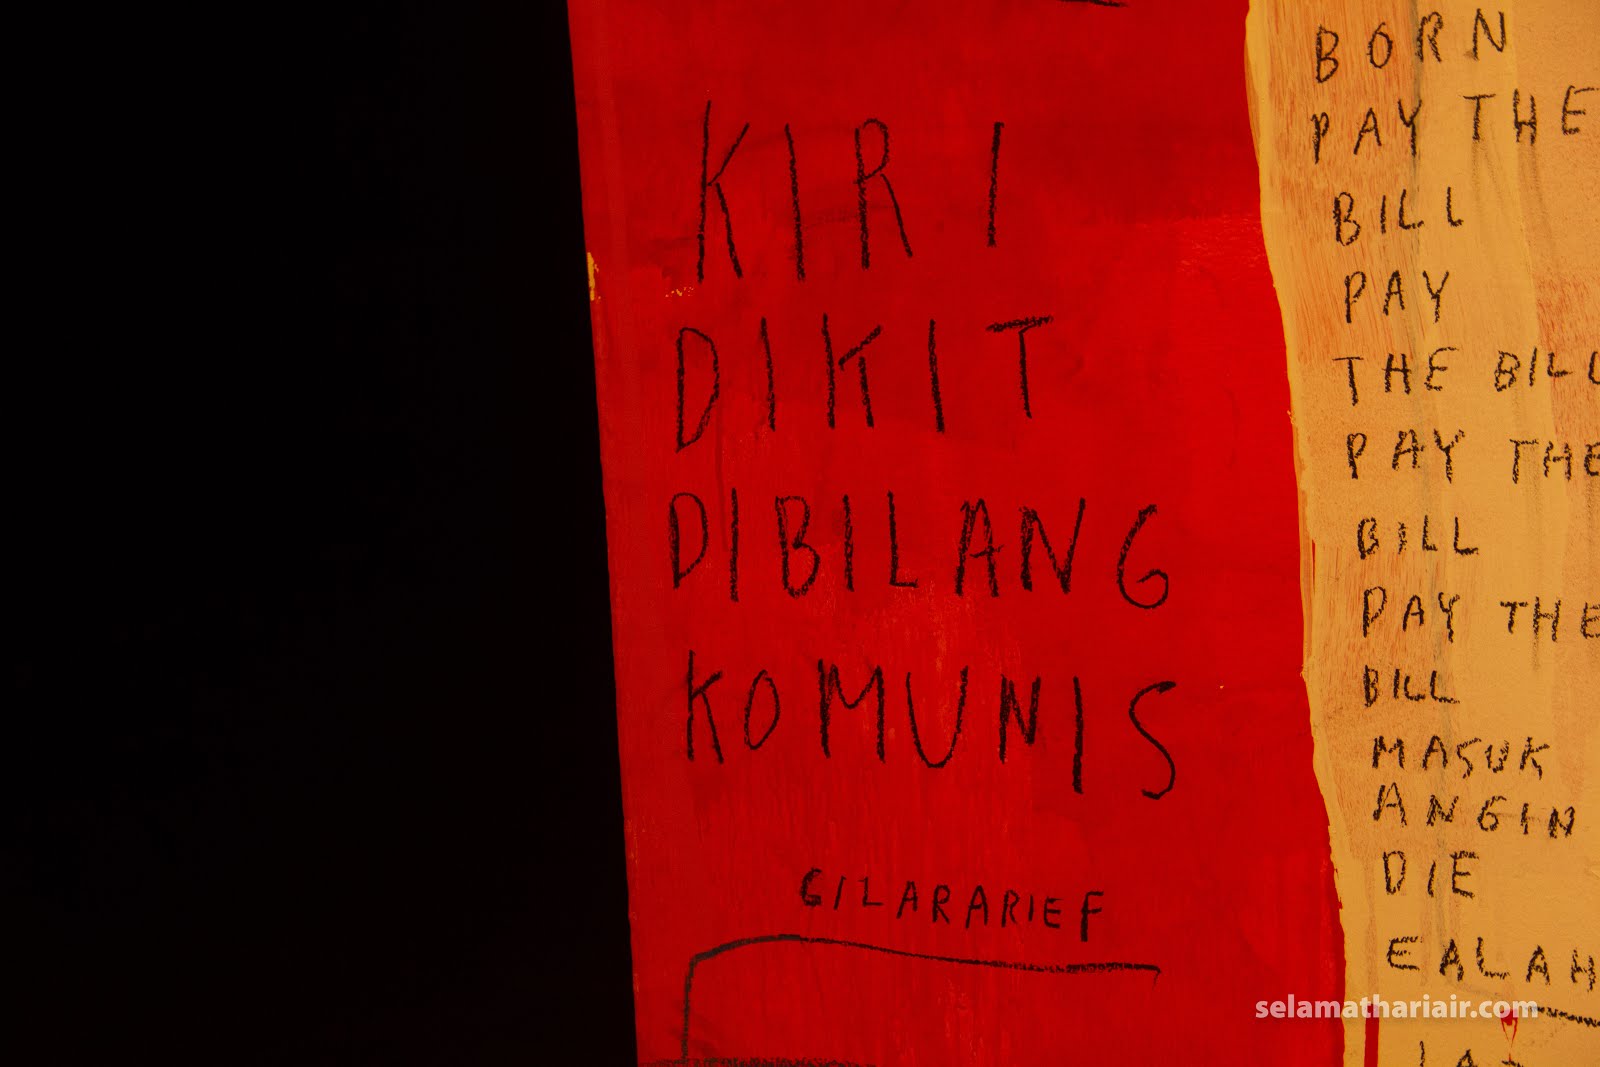 KIRI
DIKIT
DIBILANG
KOMUNIS
GILARARIEF
BORN
PAY THE
BILL
PAY
THE BILL
PAY THE
BILL
PAY THE
BILL
MASUK
ANGIN
DIE
EALAH
selamathariair.com